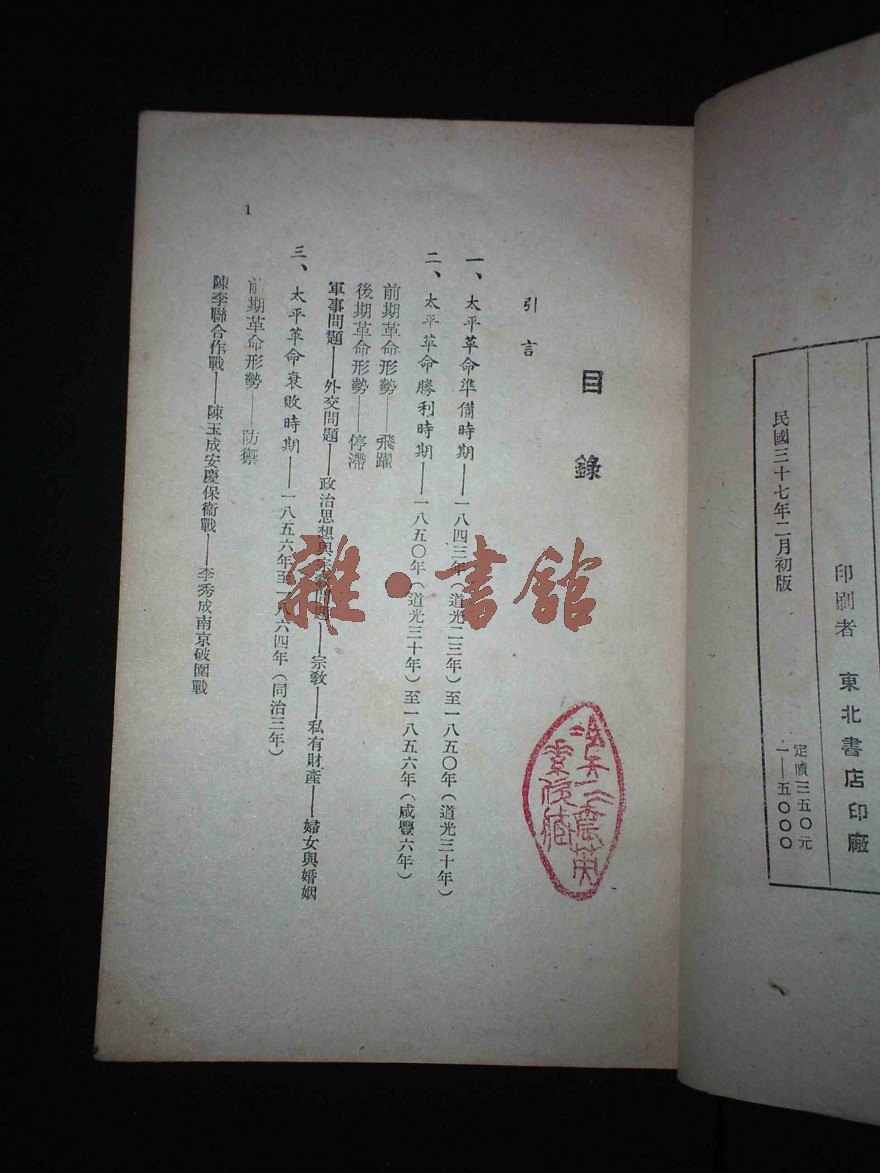 民國三十七年二月初版
印刷者 東北書店印廠
定價三五〇元
一——五〇〇〇
目錄
引言
一、太平革命準備時期——一八四三年(道光二三年)至一八五〇年(道光三十年)
二、太平革命勝利時期——一八五〇年(道光三十年)至一八五六年(咸豐六年)
前期革命形勢——飛躍
後期革命形勢——停滯
軍事問題——外交問題——政治思想與宗教問題——宗教——私有財產——婦女與婚姻
三、太平革命衰敗時期——一八五六年至一八六四年(同治三年)
前期革命形勢——防禦
陳李聯合作戰——陳玉成安慶保衞戰——李秀成南京破圍戰
1
雜·書館